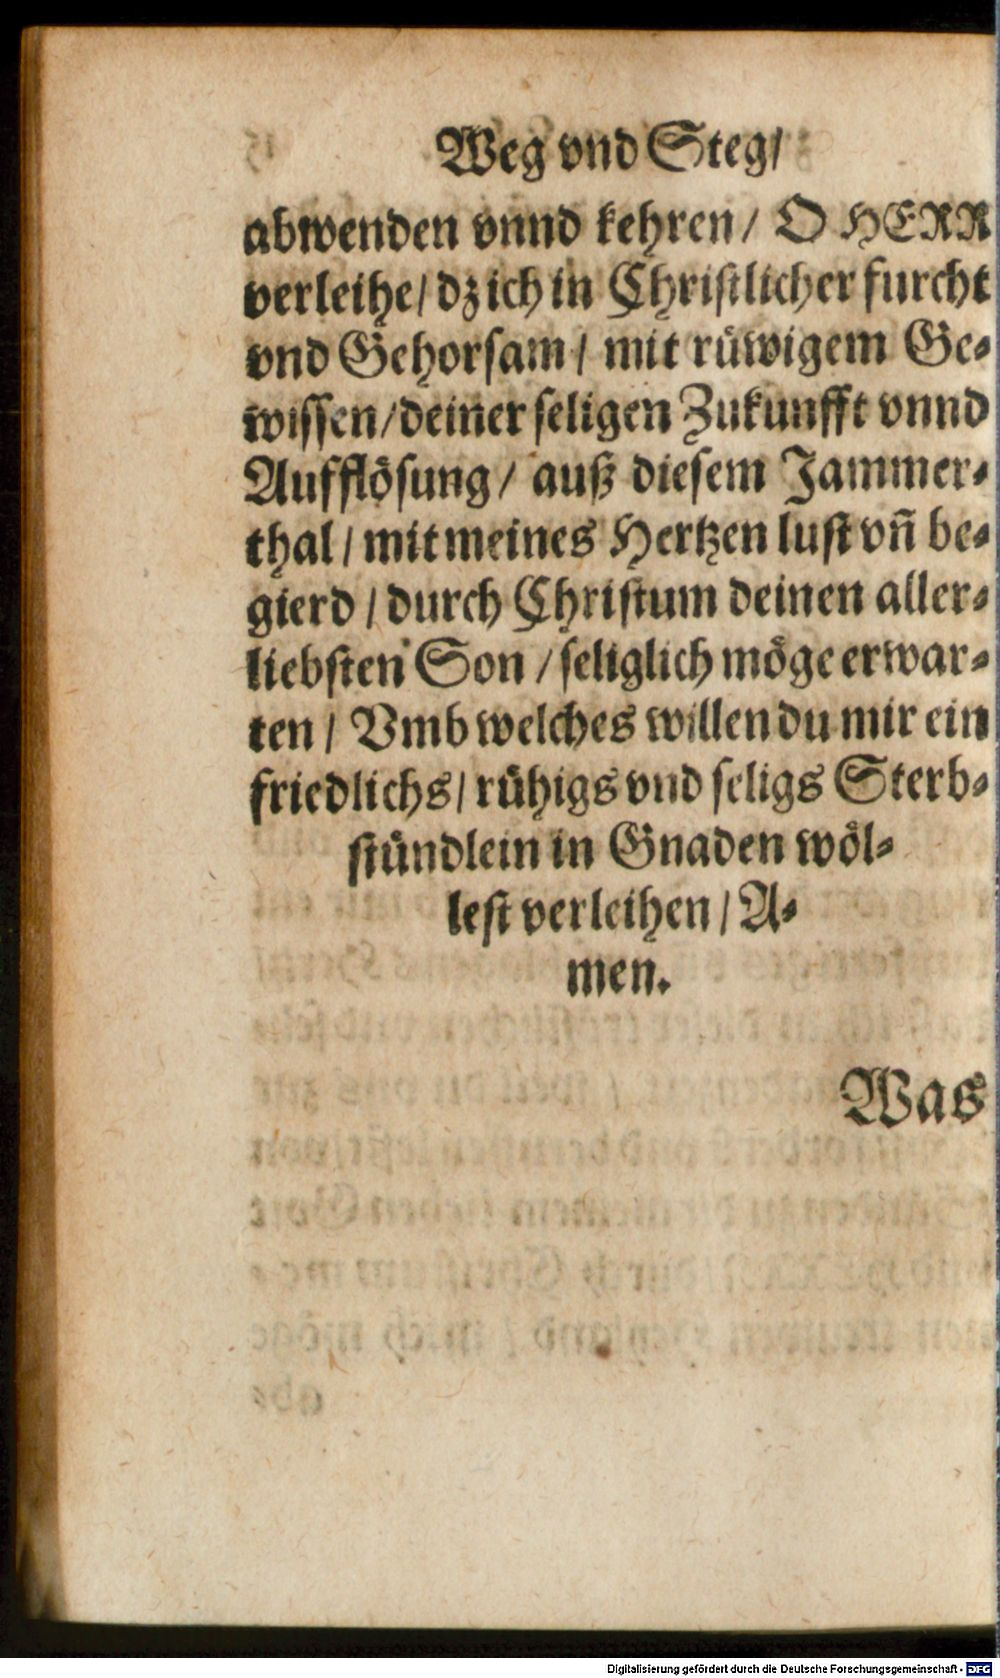 Weg vnd Steg/
abwenden vnnd kehren/ O HERR
verleihe/ dz ich in Christlicher furcht
vnd Gehorsam/ mit rüwigem Ge-
wissen/ deiner seligen Zukunfft vnnd
Aufflösung/ auß diesem Jammer-
thal/ mit meines Hertzen lust vñ be-
gierd/ durch Christum deinen aller-
liebsten Son/ seliglich möge erwar-
ten/ Vmb welches willen du mir ein
friedlichs/ rühigs vnd seligs Sterb-
stündlein in Gnaden wöl-
lest verleihen/ A-
men.
Was
Digitalisierung gefördert durch die Deutsche Forschungsgemeinschaft - DFG